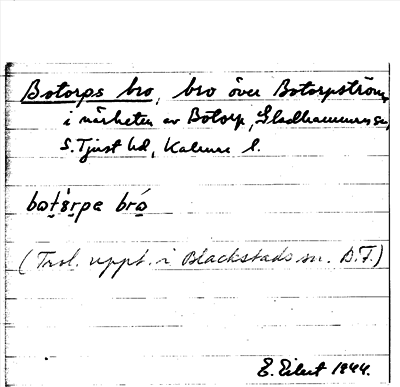 Botorps bro, bro över Botorpström,
i närheten av Botorp, Gladhammars sn,
S. Tjust hd, Kalmar l.
botorpa bro
(Trol. uppt. i Blackstads sn. D.F.)
E. Eilert 1944.